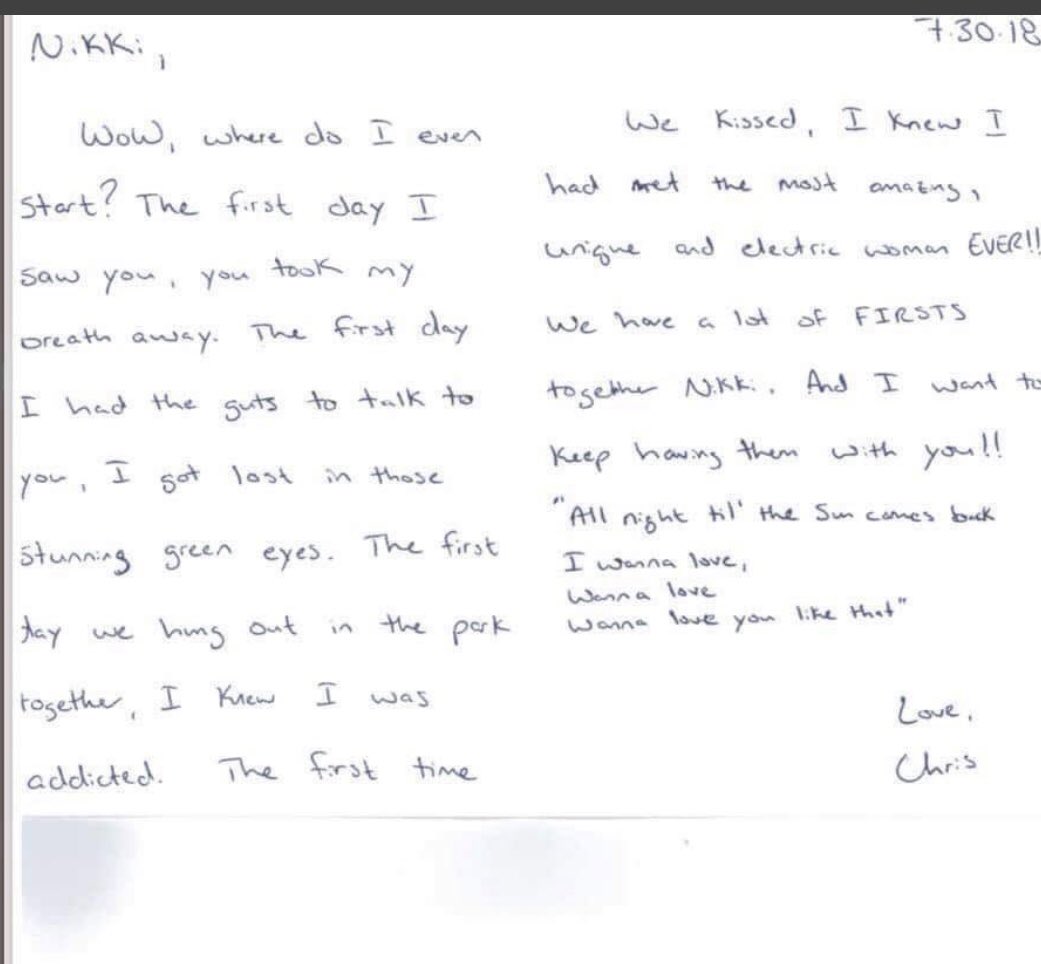 7.30.18
Nikki,
Wow, where do I even
start? The first day I
saw you, you took my
breath away. The first day
I had the guts to talk to
you, I got lost in those
stunning green eyes. The first
day we hung out in the park
together, I knew I was
addicted. The first time
We kissed, I knew I
had met the most amazing,
unique and electric woman EVER!!
We have a lot of FIRSTS
together Nikki. And I want to
keep having them with you!!
"All night til' the sun comes back
I wanna love,
Wanna love
Wanna love you like that"
Love,
Chris